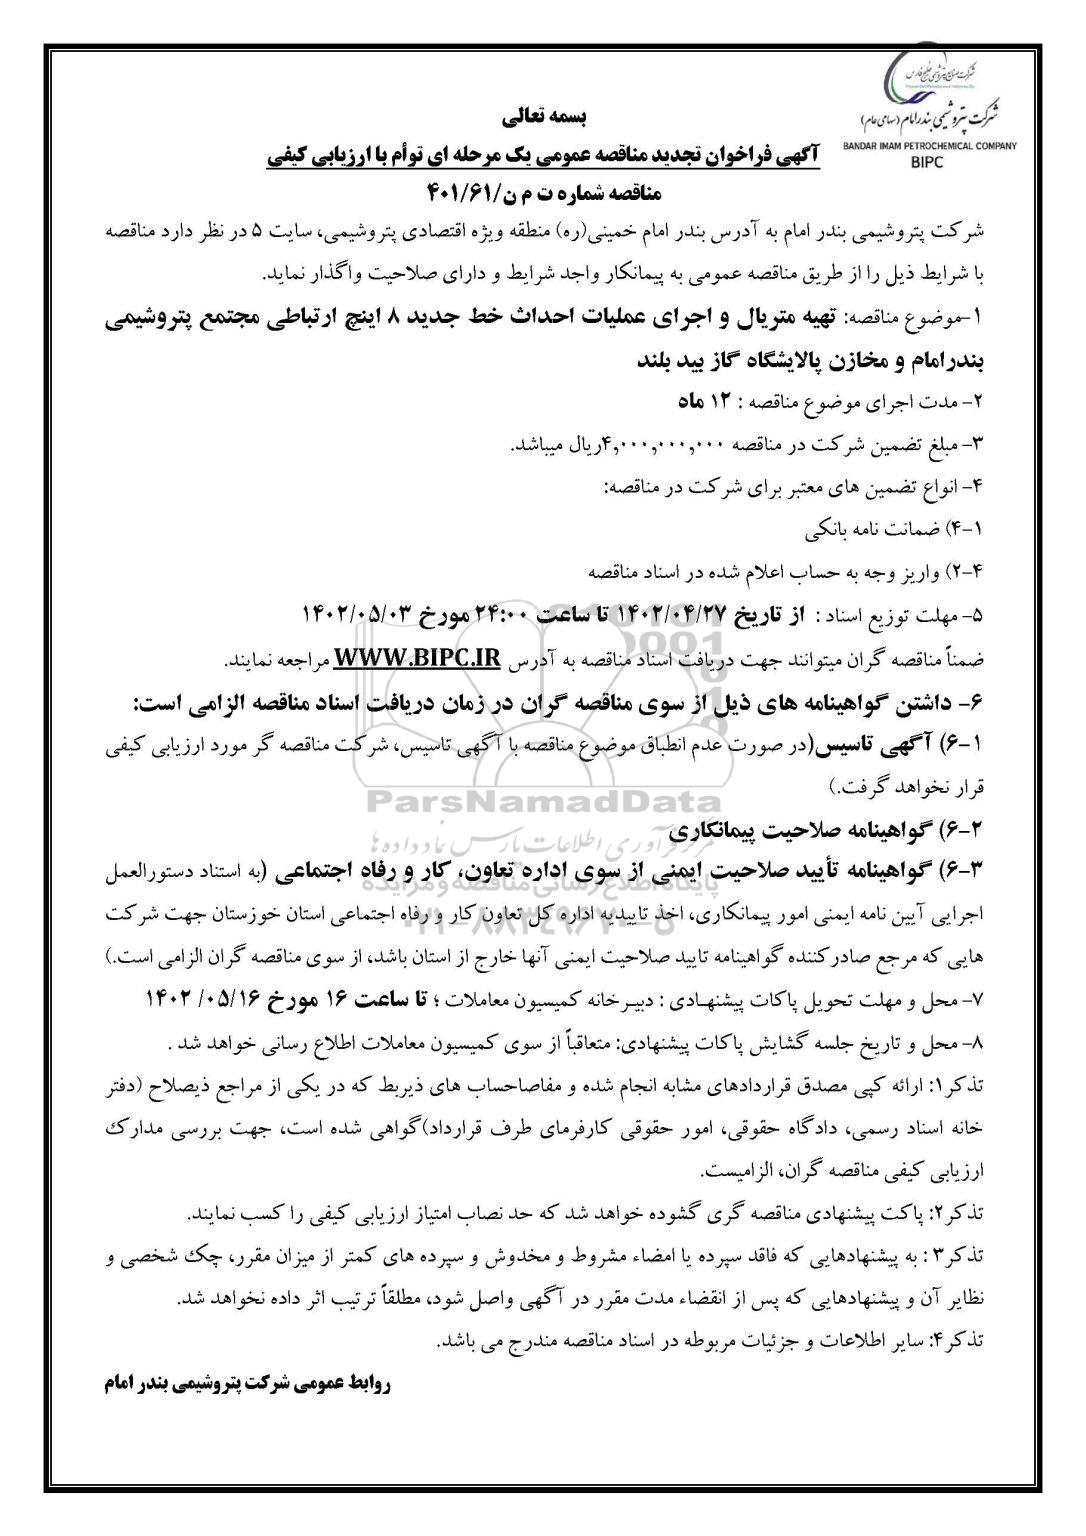 شرکت صنایع پتروشیمی خلیج فارس
شرکت پتروشیمی بندر امام (سهامی عام)
BANDAR IMAM PETROCHEMICAL COMPANY
BIPC
بسمه تعالی
آگهی فراخوان تجدید مناقصه عمومی یک مرحله ای توأم با ارزیابی کیفی
مناقصه شماره ت م ن/۴۰۱/۶۱
شرکت پتروشیمی بندر امام به آدرس بندر امام خمینی(ره) منطقه ویژه اقتصادی پتروشیمی، سایت ۵ در نظر دارد مناقصه
با شرایط ذیل را از طریق مناقصه عمومی به پیمانکار واجد شرایط و دارای صلاحیت واگذار نماید.
۱-موضوع مناقصه: تهیه متریال و اجرای عملیات احداث خط جدید ۸ اینچ ارتباطی مجتمع پتروشیمی
بندرامام و مخازن پالایشگاه گاز بید بلند
۲- مدت اجرای موضوع مناقصه : ۱۲ ماه
۳- مبلغ تضمین شرکت در مناقصه ۴,۰۰۰,۰۰۰,۰۰۰ریال میباشد.
۴- انواع تضمین های معتبر برای شرکت در مناقصه:
۴-۱) ضمانت نامه بانکی
۲-۴) واریز وجه به حساب اعلام شده در اسناد مناقصه
۵- مهلت توزیع اسناد : از تاریخ ۱۴۰۲/۰۴/۲۷ تا ساعت ۲۴:۰۰ مورخ ۱۴۰۲/۰۵/۰۳
ضمناً مناقصه گران میتوانند جهت دریافت اسناد مناقصه به آدرس WWW.BIPC.IR مراجعه نمایند.
۶- داشتن گواهینامه های ذیل از سوی مناقصه گران در زمان دریافت اسناد مناقصه الزامی است:
۶-۱) آگهی تاسیس(در صورت عدم انطباق موضوع مناقصه با آگهی تاسیس، شرکت مناقصه گر مورد ارزیابی کیفی
قرار نخواهد گرفت.)
ParsNamadData
۶-۲) گواهینامه صلاحیت پیمانکاری
مرکز فرآوری اطلاعات پارس نماد داده ها
۶-۳) گواهینامه تأیید صلاحیت ایمنی از سوی اداره تعاون، کار و رفاه اجتماعی (به استناد دستورالعمل
پایگاه اطلاع رسانی مناقصه و مزایده
اجرایی آیین نامه ایمنی امور پیمانکاری، اخذ تاییدیه اداره کل تعاون کار و رفاه اجتماعی استان خوزستان جهت شرکت
۰۲۱-۸۸۳۴۹۶۷۰-۵
هایی که مرجع صادرکننده گواهینامه تایید صلاحیت ایمنی آنها خارج از استان باشد، از سوی مناقصه گران الزامی است.)
۷- محل و مهلت تحویل پاکات پیشنهادی : دبیرخانه کمیسیون معاملات ؛ تا ساعت ۱۶ مورخ ۱۴۰۲ /۰۵/۱۶
۸- محل و تاریخ جلسه گشایش پاکات پیشنهادی: متعاقباً از سوی کمیسیون معاملات اطلاع رسانی خواهد شد .
تذکر۱: ارائه کپی مصدق قراردادهای مشابه انجام شده و مفاصاحساب های ذیربط که در یکی از مراجع ذیصلاح (دفتر
خانه اسناد رسمی، دادگاه حقوقی، امور حقوقی کارفرمای طرف قرارداد)گواهی شده است، جهت بررسی مدارک
ارزیابی کیفی مناقصه گران، الزامیست.
تذکر۲: پاکت پیشنهادی مناقصه گری گشوده خواهد شد که حد نصاب امتیاز ارزیابی کیفی را کسب نمایند.
تذکر۳ : به پیشنهادهایی که فاقد سپرده یا امضاء مشروط و مخدوش و سپرده های کمتر از میزان مقرر، چک شخصی و
نظایر آن و پیشنهادهایی که پس از انقضاء مدت مقرر در آگهی واصل شود، مطلقاً ترتیب اثر داده نخواهد شد.
تذکر۴: سایر اطلاعات و جزئیات مربوطه در اسناد مناقصه مندرج می باشد.
روابط عمومی شرکت پتروشیمی بندر امام